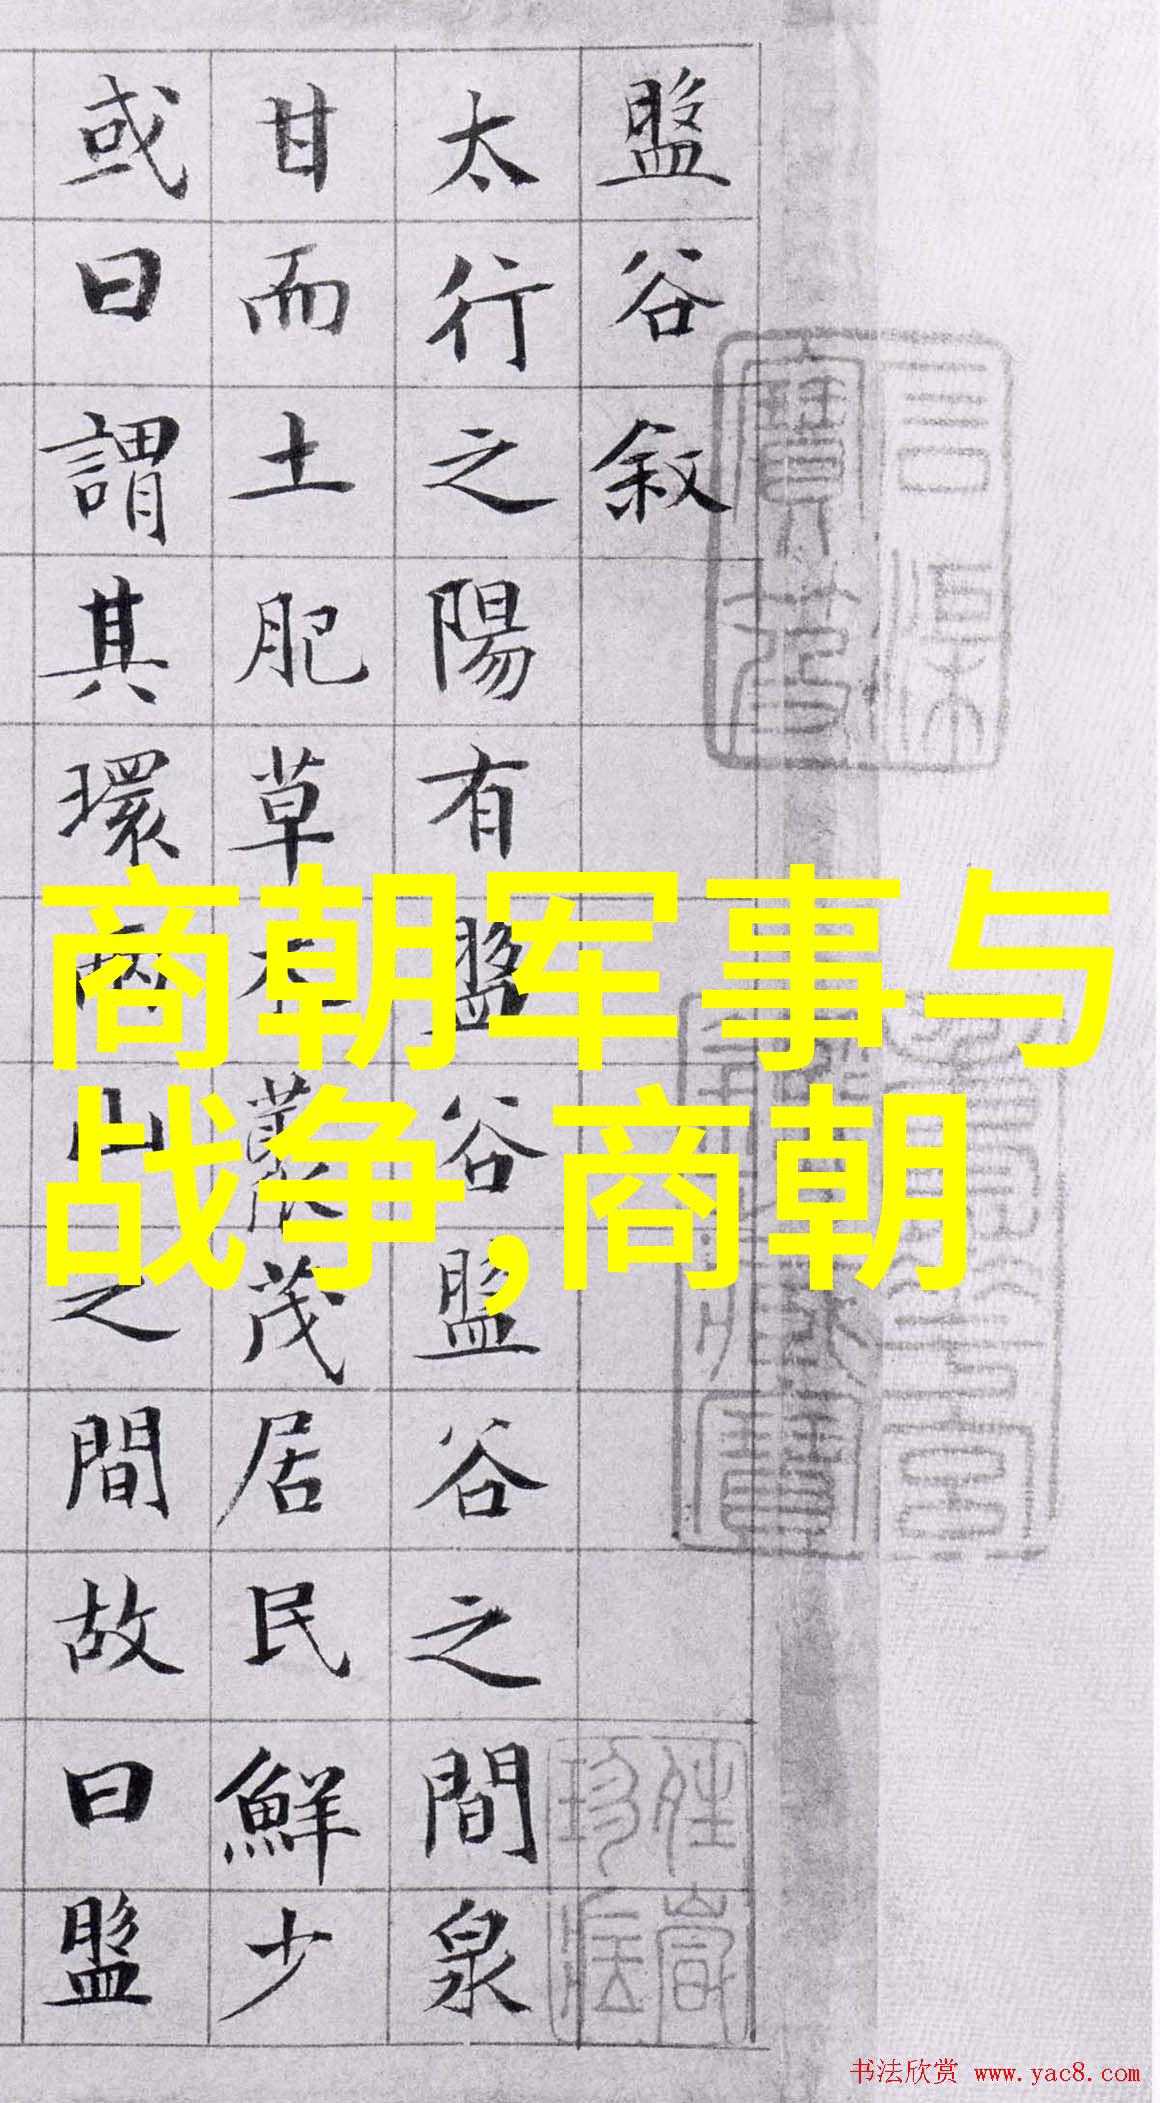 盤谷敘
太行之陽有盤谷盤谷之間泉
甘而土肥草木藂茂居民鮮少
或曰謂其環兩山之間故曰盤
商朝军事与
战争,商朝
书法欣赏 www.yac8.com